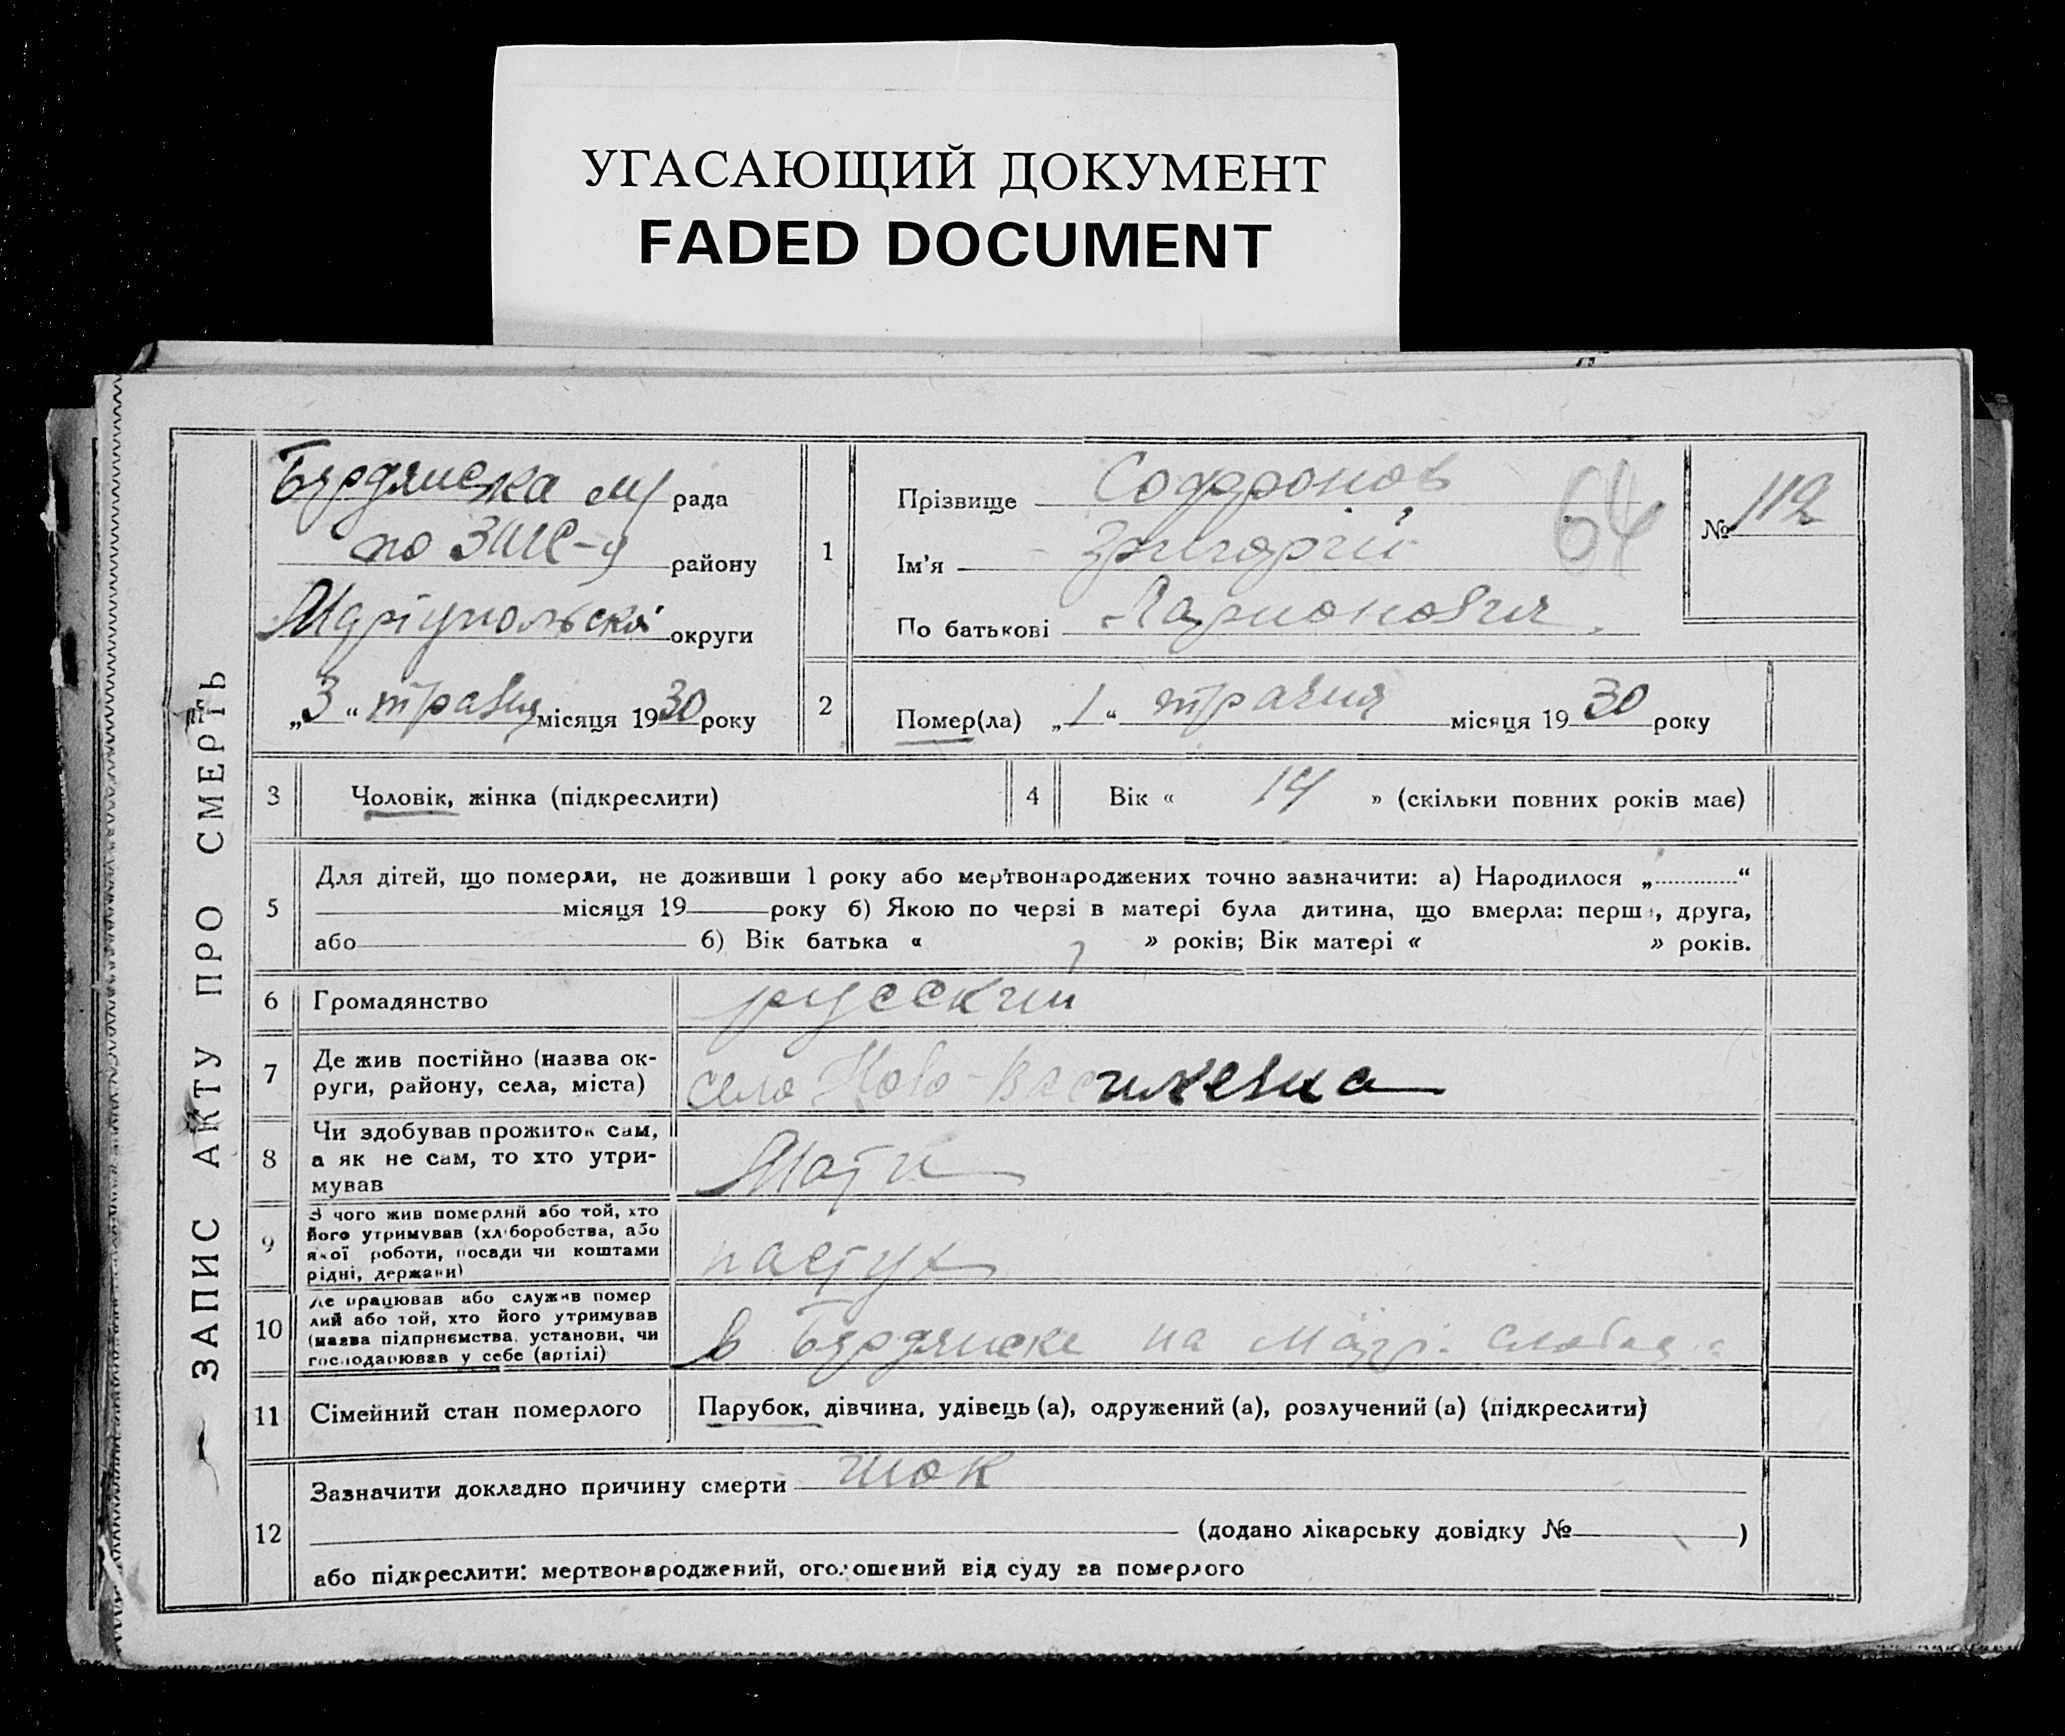 УГАСАЮЩИЙ ДОКУМЕНТ
FADED DOCUMENT
ЗАПИС АКТУ ПРО СМЕРТЬ
Бердянська м/ рада
по ЗАГС-у району
Маріупольскоі округи
„3“ травня місяця 1930 року
1
Прізвище Софронов
Ім'я Григорій
По батькові Ларионович
64
№ 112
2
Помер(ла) „1“ травня місяця 1930 року
3 Чоловік, жінка (підкреслити)
4 Вік « 14 » (скільки повних років має)
5
Для дітей, що померли, не доживши 1 року або мертвонароджених точно зазначити: а) Народилося „ “
місяця 19 року б) Якою по черзі в матері була дитина, що вмерла: перша, друга,
або б) Вік батька « » років; Вік матері « » років.
6 Громадянство русский
7
Де жив постійно (назва ок-
руги, району, села, міста)
село Ново-Василевка
8
Чи здобував прожиток сам,
а як не сам, то хто утри-
мував
Мати
9
З чого жив померлий або той, хто
його утримував (хліборобства, або
якої роботи, посади чи коштами
рідні, держави)
пастух
10
Де працював або служив помер
лий або той, хто його утримував
(назва підприємства, установи, чи
господарював у себе (артілі)
в Бердянске на
11 Сімейний стан померлого
Парубок, дівчина, удівець (а), одружений (а), розлучений (а) (підкреслити)
12
Зазначити докладно причину смерти шок
(додано лікарську довідку № )
або підкреслити: мертвонароджений, оголошений від суду за померлого